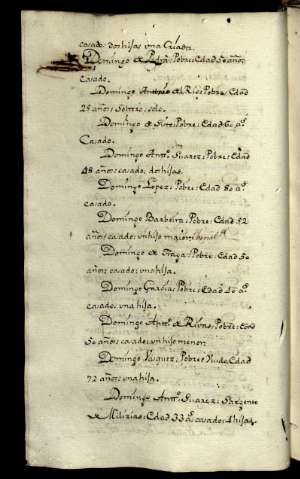 casado; dos hijas una Criada
Domingo de : Pobre; Edad 50 años
Casado.
Domingo Antonio de Rios; Pobre; Edad
25 años; Soltero, solo.
Domingo de ; Pobre; Edad 60 aº
Casado.
Domingo Antº Suarez; Pobre; Edad
48 años; casado, dos hijas.
Domingo Lopez; Pobre; Edad 80 aº
casado.
Domingo Barbeira; Pobre; Edad 52
años; casado; un hijo maior
Domingo de Fraga; Pobre; Edad 50
años; casado; una hija.
Domingo Garcia; Pobre; Edad 40 aº
casado; una hija.
Domingo Antº de ; Pobre; Edad
50 años; casado; un hijo menor
Domingo Vasquez; Pobre; Viudo; Edad
72 años; una hija.
Domingo Antº Suarez; Sargento
de Milizias; Edad 33 aº; casado; 4 hijas